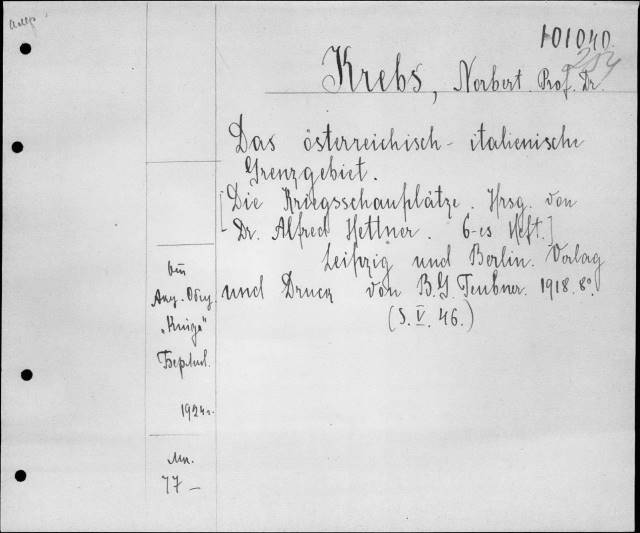 101040
254
Krebs, Norbert. Prof. Dr.
Das österreichisch-italienische
Grenzgebiet.
[Die Kriegsschauplätze. Hrsg. von
Dr. Alfred Hettner. 6-es Heft.]
Leipzig und Berlin. Verlag
und Druck von B. G. Teubner. 1918. 8º.
(S. V. 46.)
Акц. Общ.
„Книга"
Берлин.
1924 г.
77 –